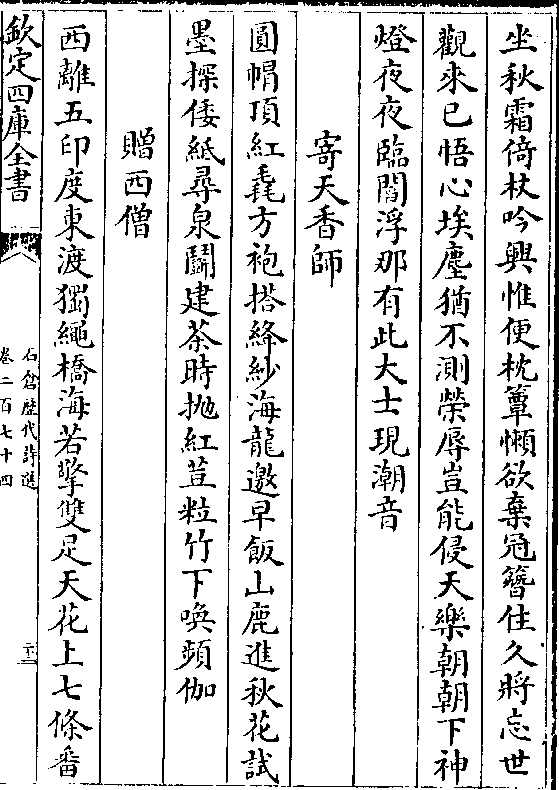 坐秋霜倚杖吟興惟便枕簟懶欲棄冠簪住久將忘世
觀來已悟心埃塵猶不測榮辱豈能侵天樂朝朝下神
燈夜夜臨閻浮那有此大士現潮音
寄天香師
圓帽頂紅毳方袍搭絳紗海龍邀早飯山鹿進秋花試
墨探倭紙尋泉鬬建茶時拋紅荳粒竹下喚頻伽
贈西僧
西離五印度東渡獨繩橋海若擎雙足天花上七條番
欽定四庫全書
石倉歷代詩選
卷二百七十四